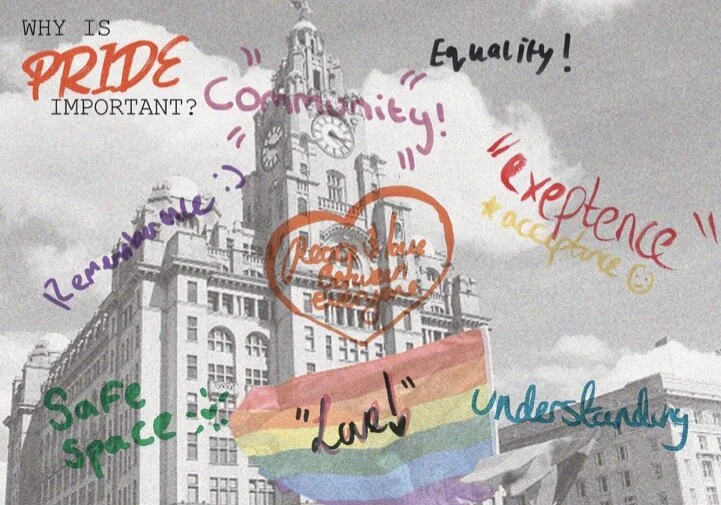 WHY IS
PRIDE
IMPORTANT?
Equality!
"Community!"
"exeptence"
*acceptance
Rememberance :)
Peace & love
between
everyone
Safe
space
"Love!"
Understanding